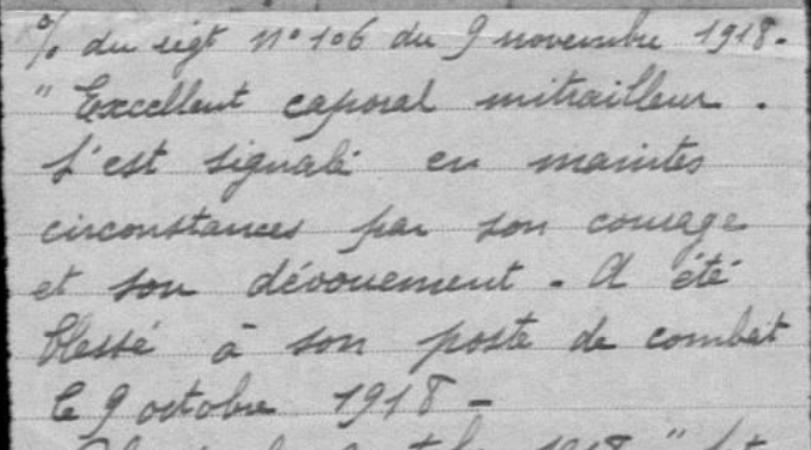 % du régt n° 106 du 9 novembre 1918.
"Excellent caporal mitrailleur.
S'est signalé en maintes
circonstances par son courage
et son dévouement. A été
blessé à son poste de combat
le 9 octobre 1918 -
1918"